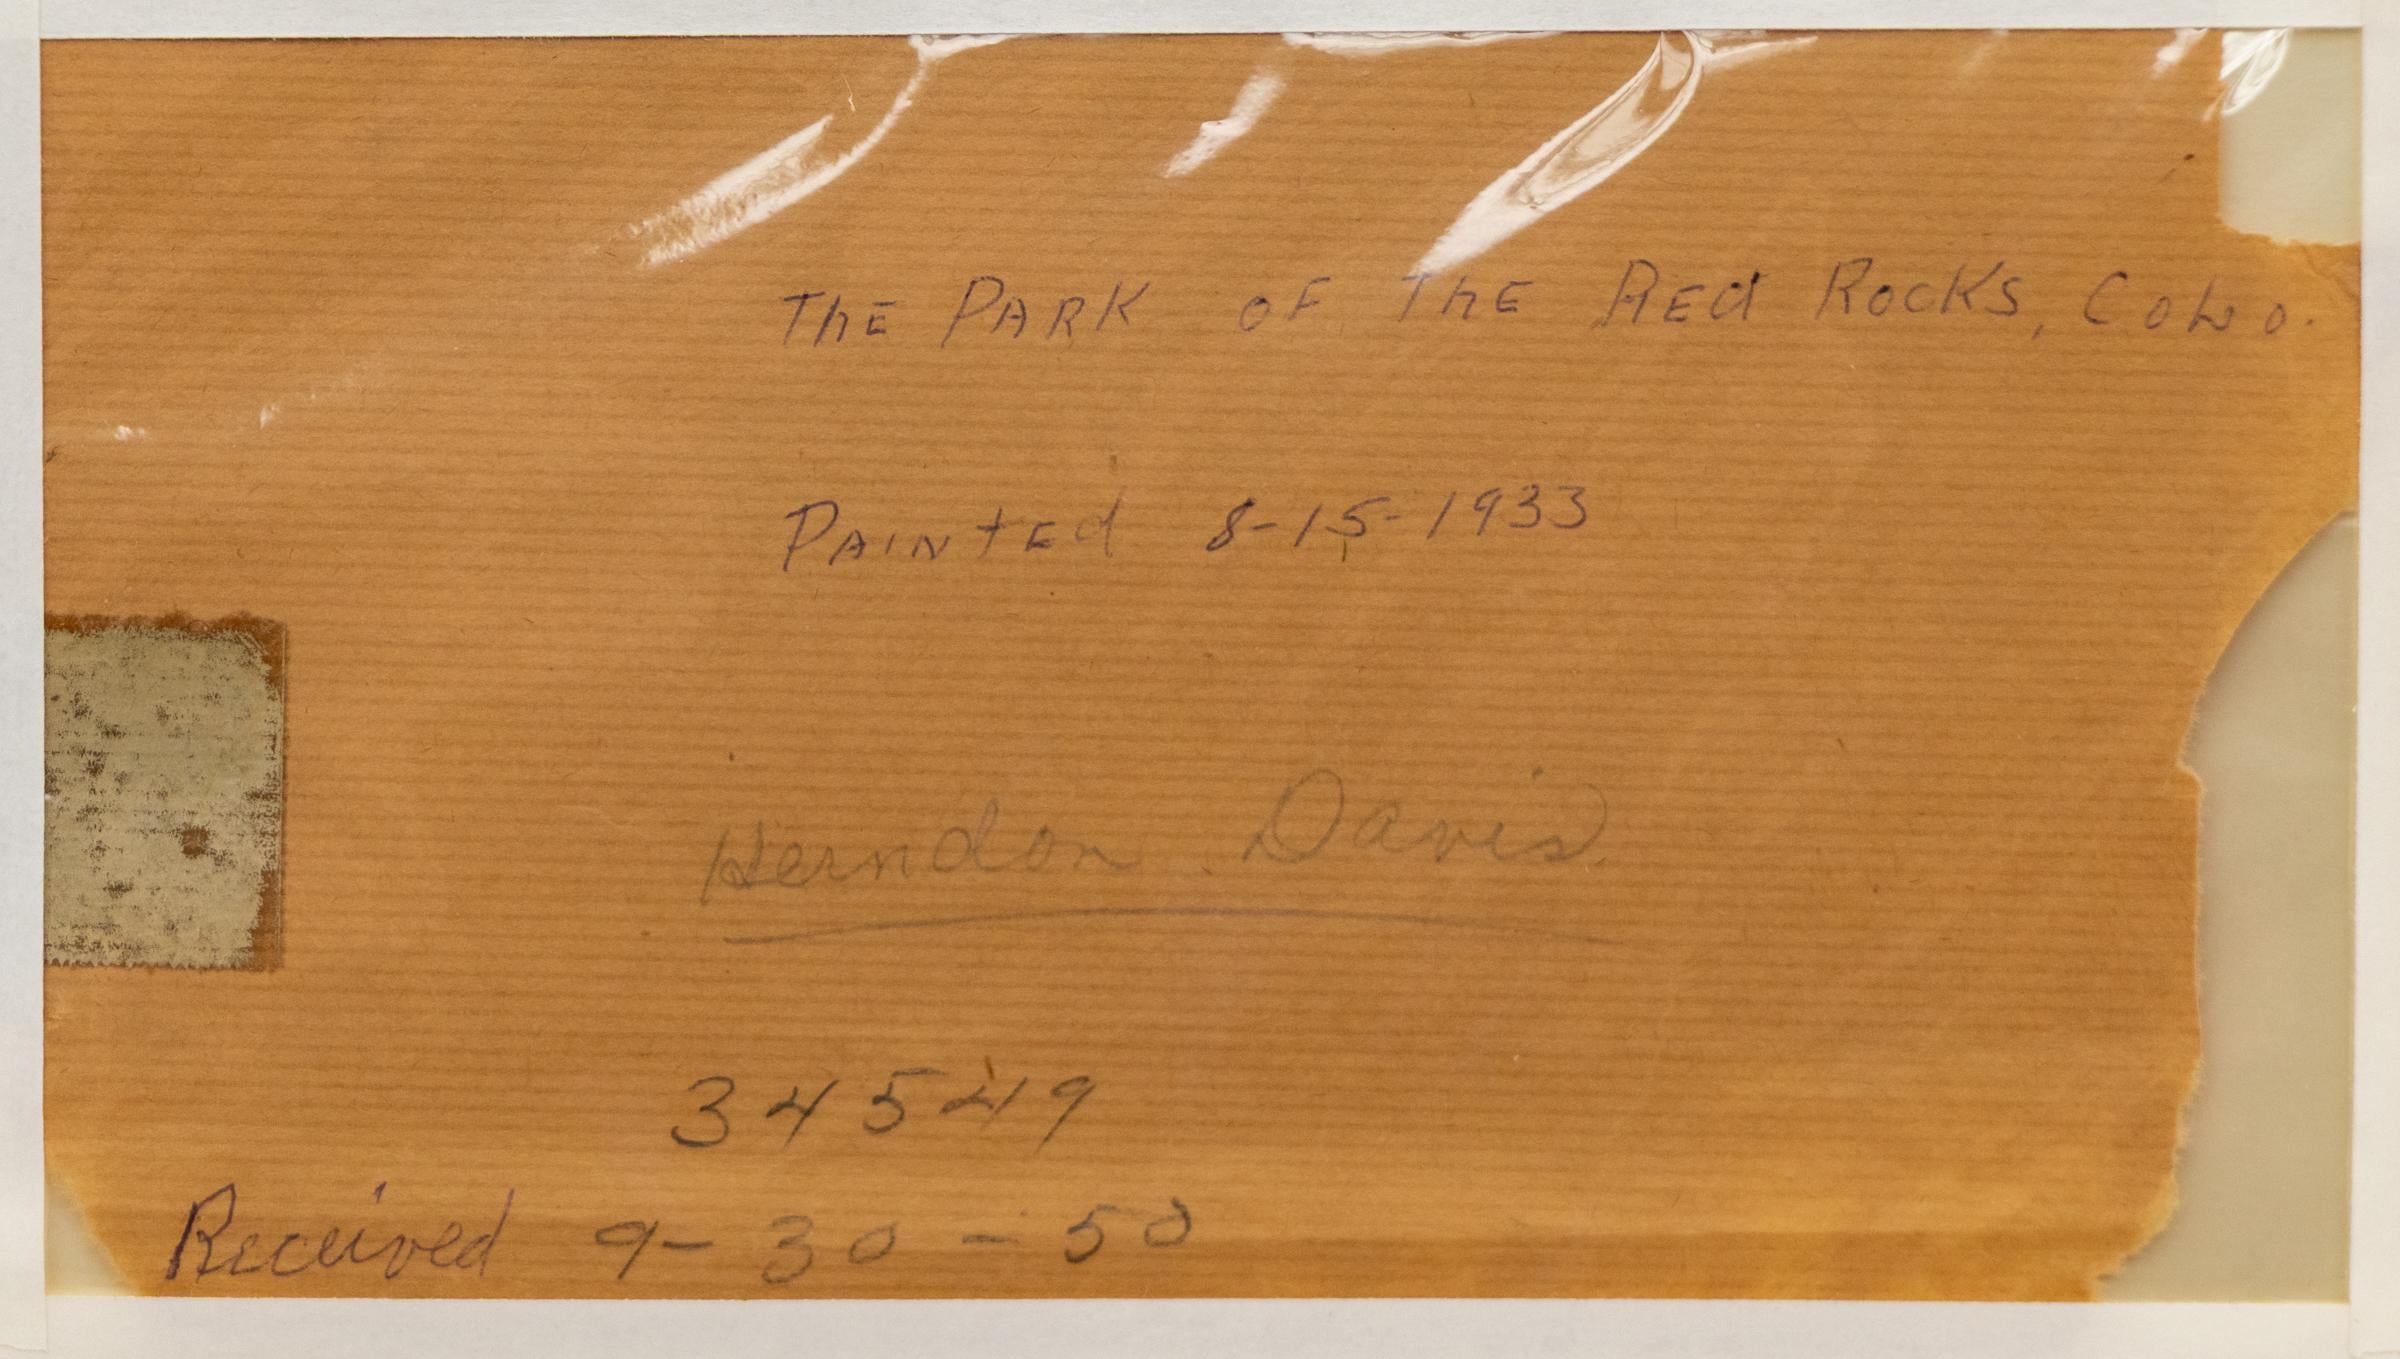 The PARK OF The Red ROCKS, Colo.
PAINted 8-15-1933
Herndon Davis.
34549
Received 9-30-50